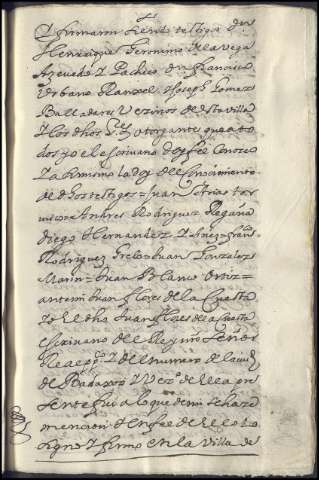 Y firmaron siendo testigos don
Henrrique Geronimo de la Vega
Azeuedo Y Pacheco don francisco
Vrbano Ranxel Y Joseph Gomez
Balladares Vezinos de esta villa
Y los dhos otorgantes que a to
dos yo el escriuano doy fee Conozco
Y a firmo la doy del Conocimiento
de dhos testigos = Juan Arias tor
Andres Rodriguez Regaña
diego Hernandez
Rodriguez = Juan Gonzalez
Marin = Juan Blanco Ortiz =
ante mi Juan flores de la Cuesta
Yo el dho Juan flores de la Cuesta
escriuano del Rey nro Señor
Y del numero de la ciud
de Badaxoz Y Vezo de ella pre
sente fui a lo que de mi se haze
mencion Y en fee de ello lo
signo Y firmo en la Villa de